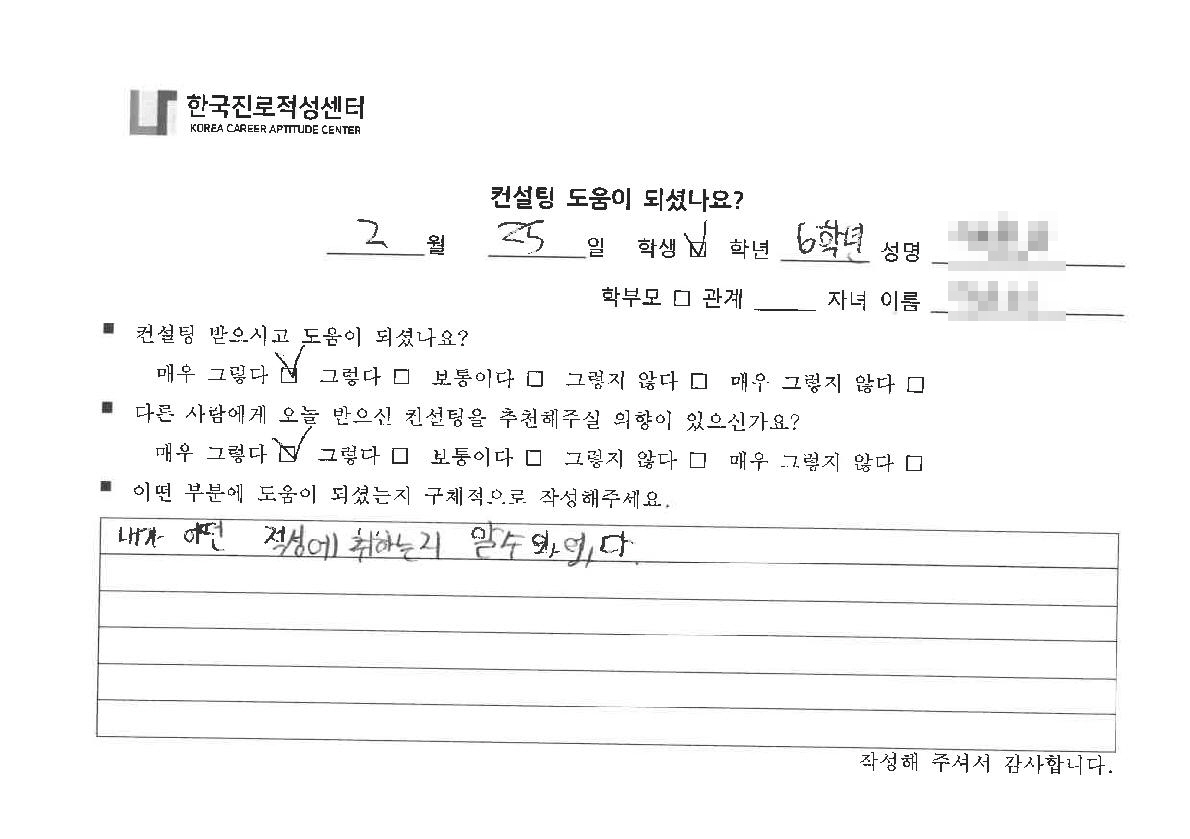 한국진로적성센터
KOREA CAREER APTITUDE CENTER
컨설팅 도움이 되셨나요?
2 월 25 일 학생 ☑ 학년 6학년 성명
학부모 □ 관계 자녀 이름
■ 컨설팅 받으시고 도움이 되셨나요?
매우 그렇다 ☑ 그렇다 □ 보통이다 □ 그렇지 않다 □ 매우 그렇지 않다 □
■ 다른 사람에게 오늘 받으신 컨설팅을 추천해주실 의향이 있으신가요?
매우 그렇다 ☑ 그렇다 □ 보통이다 □ 그렇지 않다 □ 매우 그렇지 않다 □
■ 어떤 부분에 도움이 되셨는지 구체적으로 작성해주세요.
내가 어떤 적성에 취하는지 알수
작성해 주셔서 감사합니다.